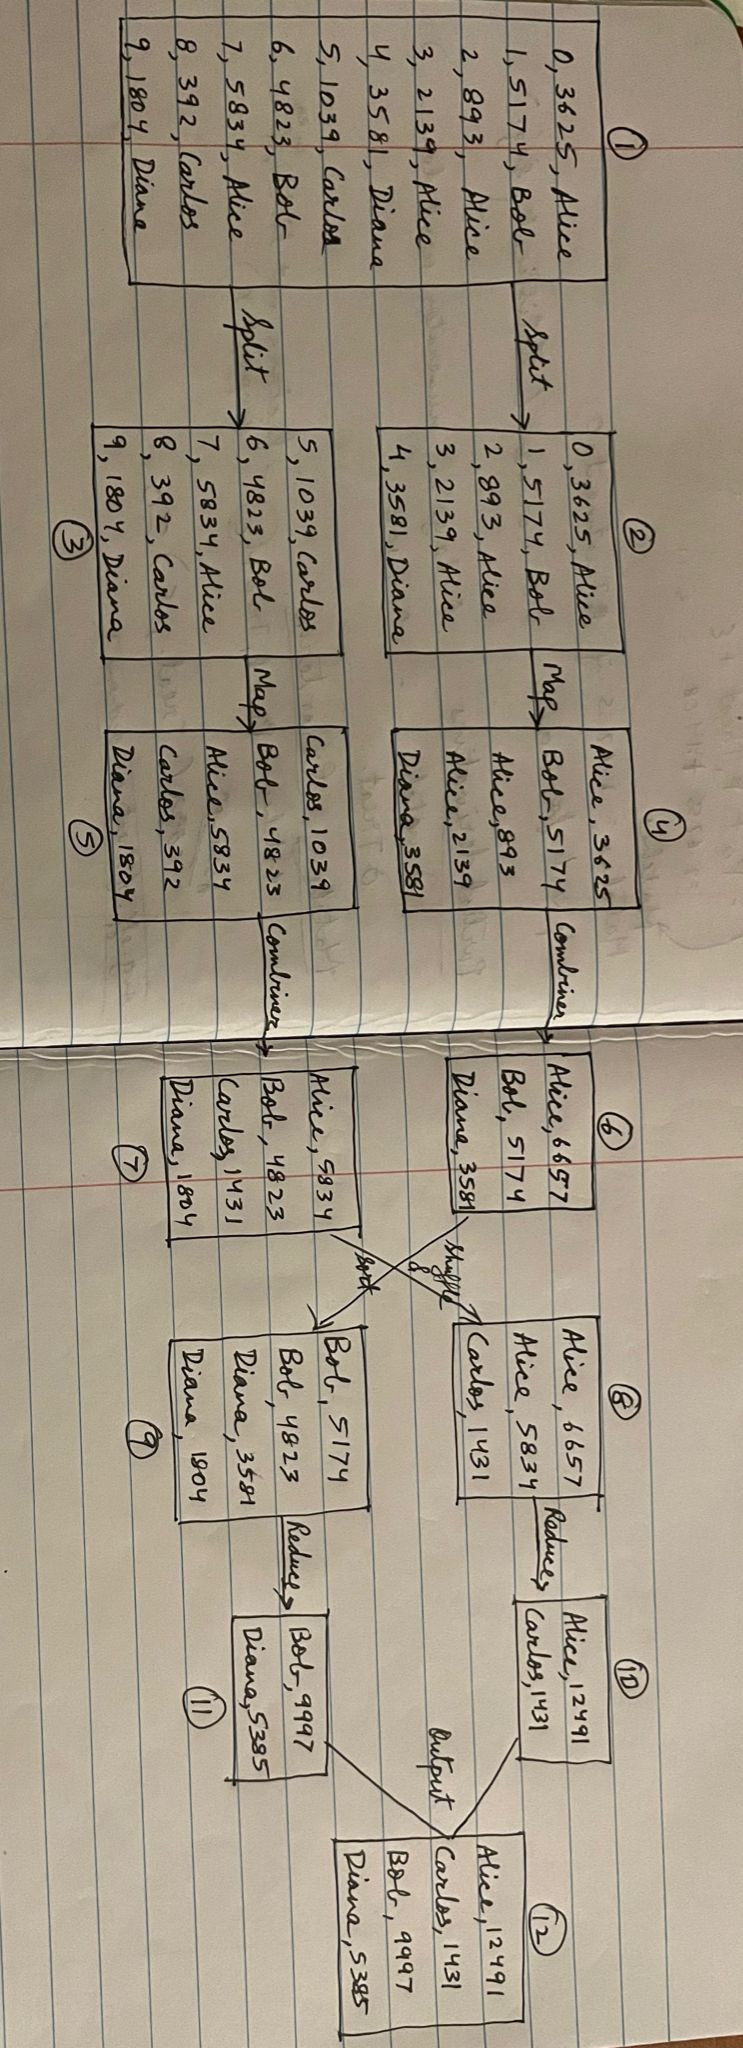 ①
0, 3625, Alice
1, 5174, Bob
2, 893, Alice
3, 2139, Alice
4, 3581, Diana
5, 1039, Carlos
6, 4823, Bob
7, 5834, Alice
8, 392, Carlos
9, 1804, Diana
Split
Split
②
0, 3625, Alice
1, 5174, Bob
2, 893, Alice
3, 2139, Alice
4, 3581, Diana
5, 1039, Carlos
6, 4823, Bob
7, 5834, Alice
8, 392, Carlos
9, 1804, Diana
③
Map
Map
④
Alice, 3625
Bob, 5174
Alice, 893
Alice, 2139
Diana, 3581
Carlos, 1039
Bob, 4823
Alice, 5834
Carlos, 392
Diana, 1804
⑤
Combiner
Combiner
⑥
Alice, 6657
Bob, 5174
Diana, 3581
Alice, 5834
Bob, 4823
Carlos, 1431
Diana, 1804
⑦
Shuffle
&
Sort
⑧
Alice, 6657
Alice, 5834
Carlos, 1431
Bob, 5174
Bob, 4823
Diana, 3581
Diana, 1804
⑨
Reduce
Reduce
⑩
Alice, 12491
Carlos, 1431
Bob, 9997
Diana, 5385
⑪
Output
⑫
Alice, 12491
Carlos, 1431
Bob, 9997
Diana, 5385